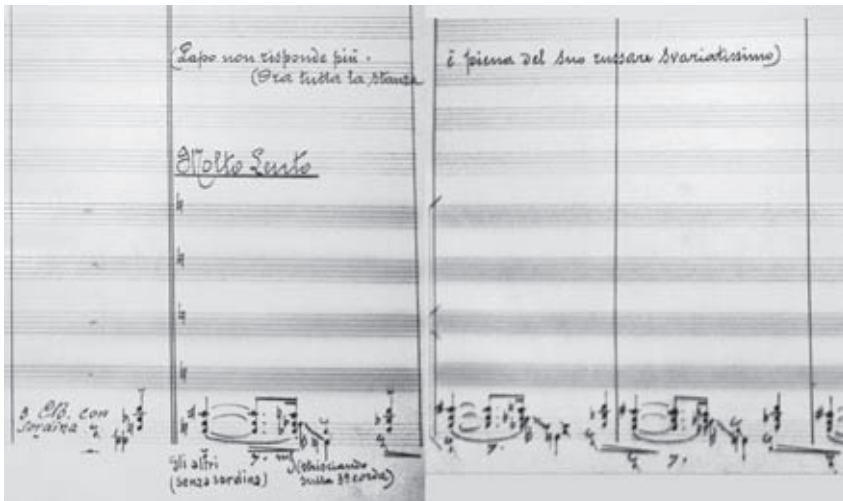 (Lapo non risponde più.
(Ora tutta la stanza
è piena del suo russare svariatissimo)
Molto Lento
3 Clb. con
sordina
pp
gli altri
(senza sordina)
(strisciando
sulla 3ª corda)